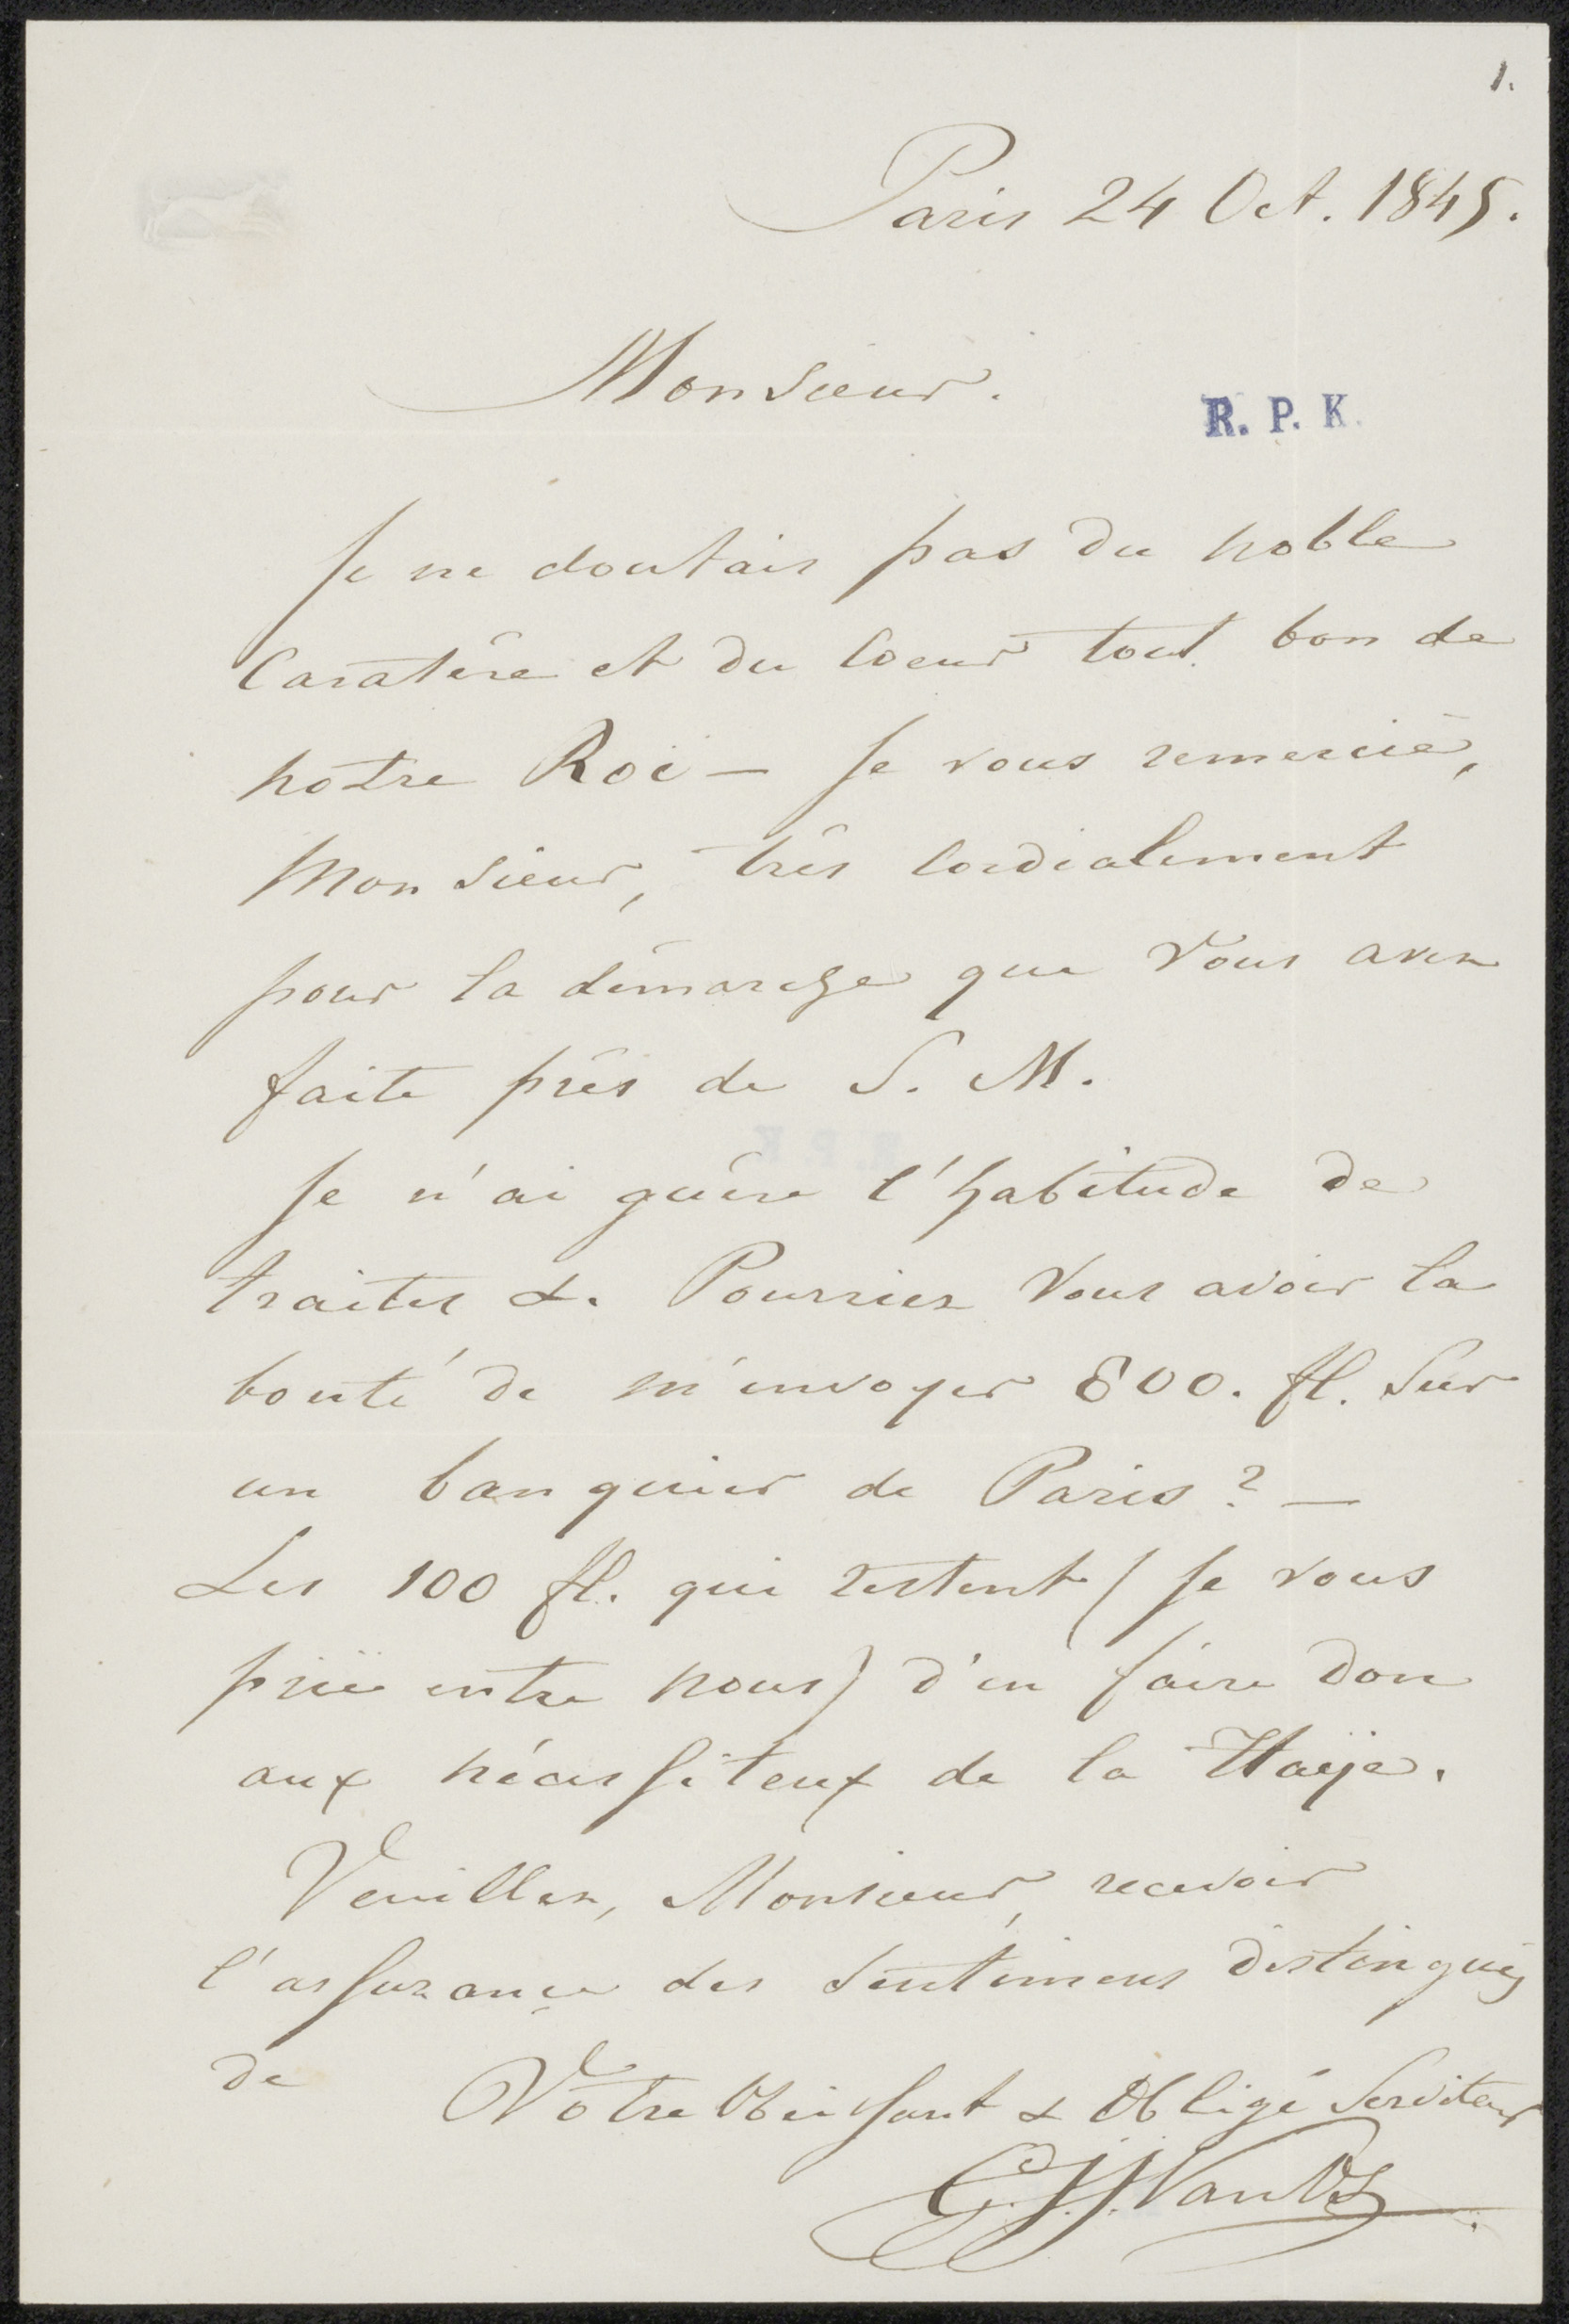 1.
Paris 24 Oct. 1845.
Monsieur.
R. P. K.
Je ne doutais pas du noble
Caratère et du Coeur tout bon de
notre Roi — Je vous remercie,
Monsieur, très Cordialement
pour la démarche que Vous avez
faite près de S. M.
Je n'ai guère l'habitude de
traites &. Pourriez Vous avoir la
bonté de m'envoyer 800. fl. Sur
un banquier de Paris? —
Les 100 fl. qui restent (Je vous
prie entre nous) d'en faire don
aux nécessiteux de la Haÿe.
Veuillez, Monsieur, recevoir
l'assurance des Sentimens distingués
de Votre Obéissant & Obligé Serviteur
G. J. J. Van Os